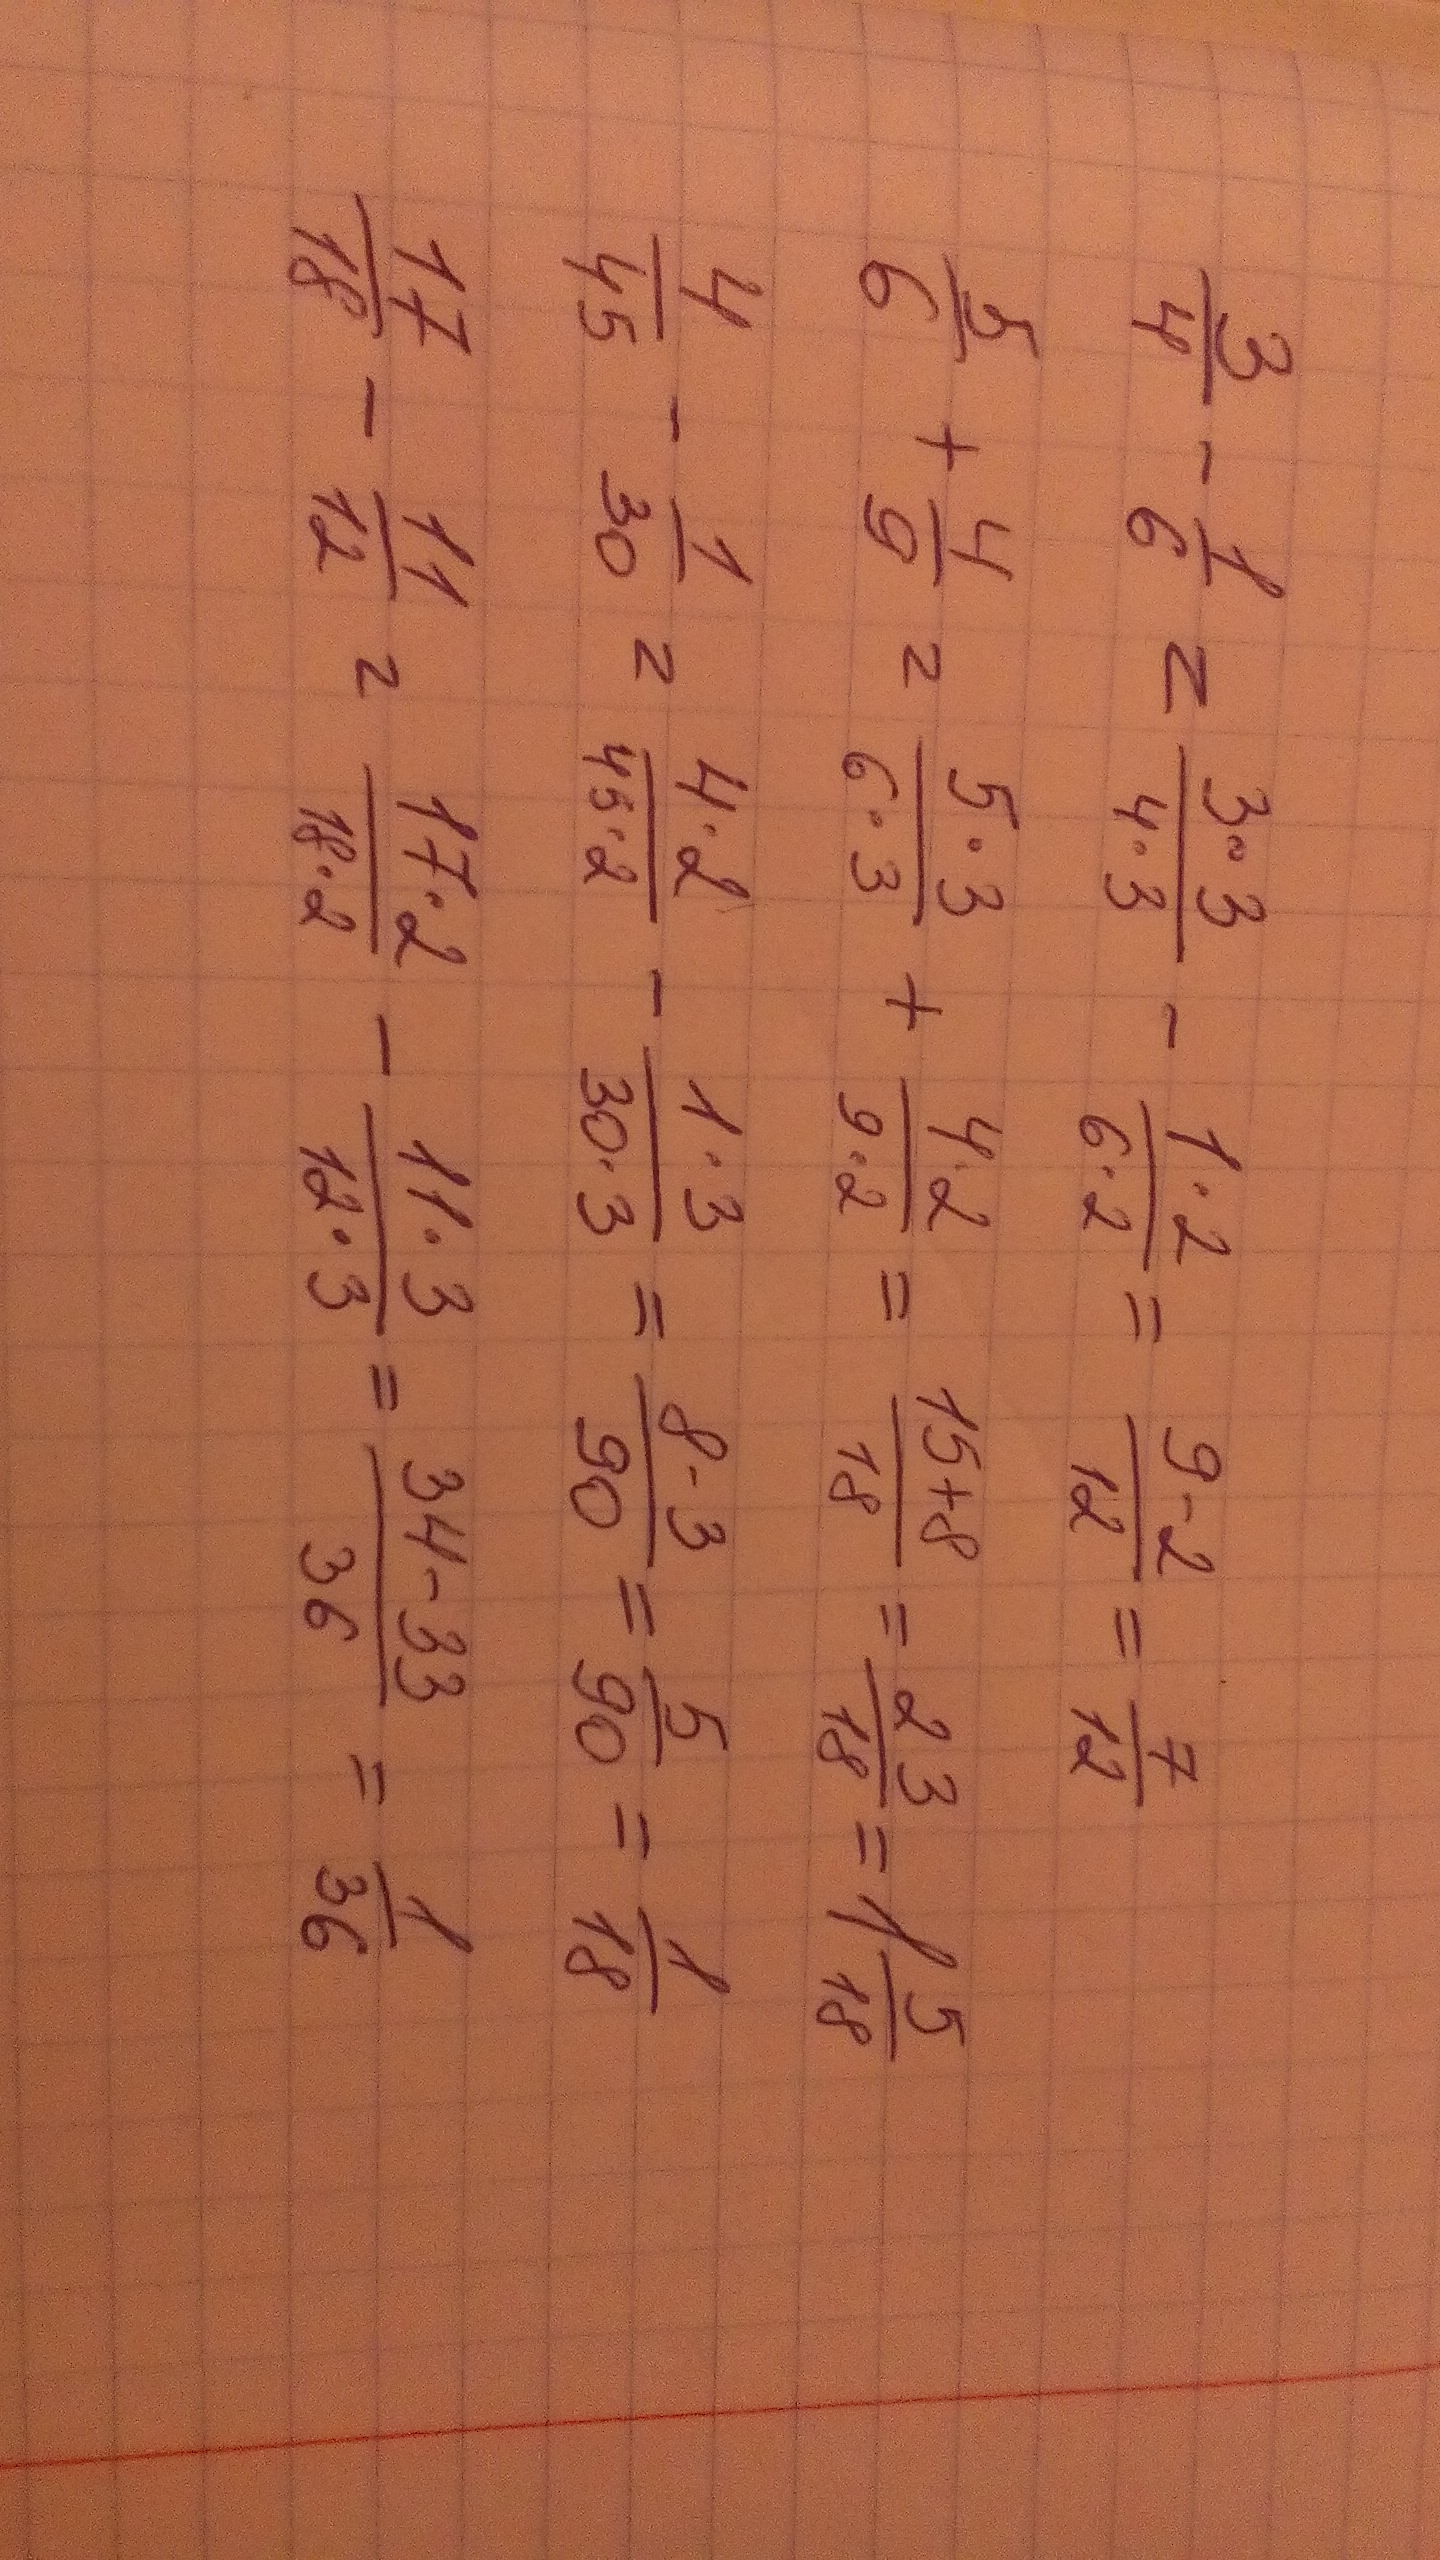 3/4 - 1/6 = 3·3/4·3 - 1·2/6·2 = 9-2/12 = 7/12
5/6 + 4/9 = 5·3/6·3 + 4·2/9·2 = 15+8/18 = 23/18 = 1 5/18
4/45 - 1/30 = 4·2/45·2 - 1·3/30·3 = 8-3/90 = 5/90 = 1/18
17/18 - 11/12 = 17·2/18·2 - 11·3/12·3 = 34-33/36 = 1/36